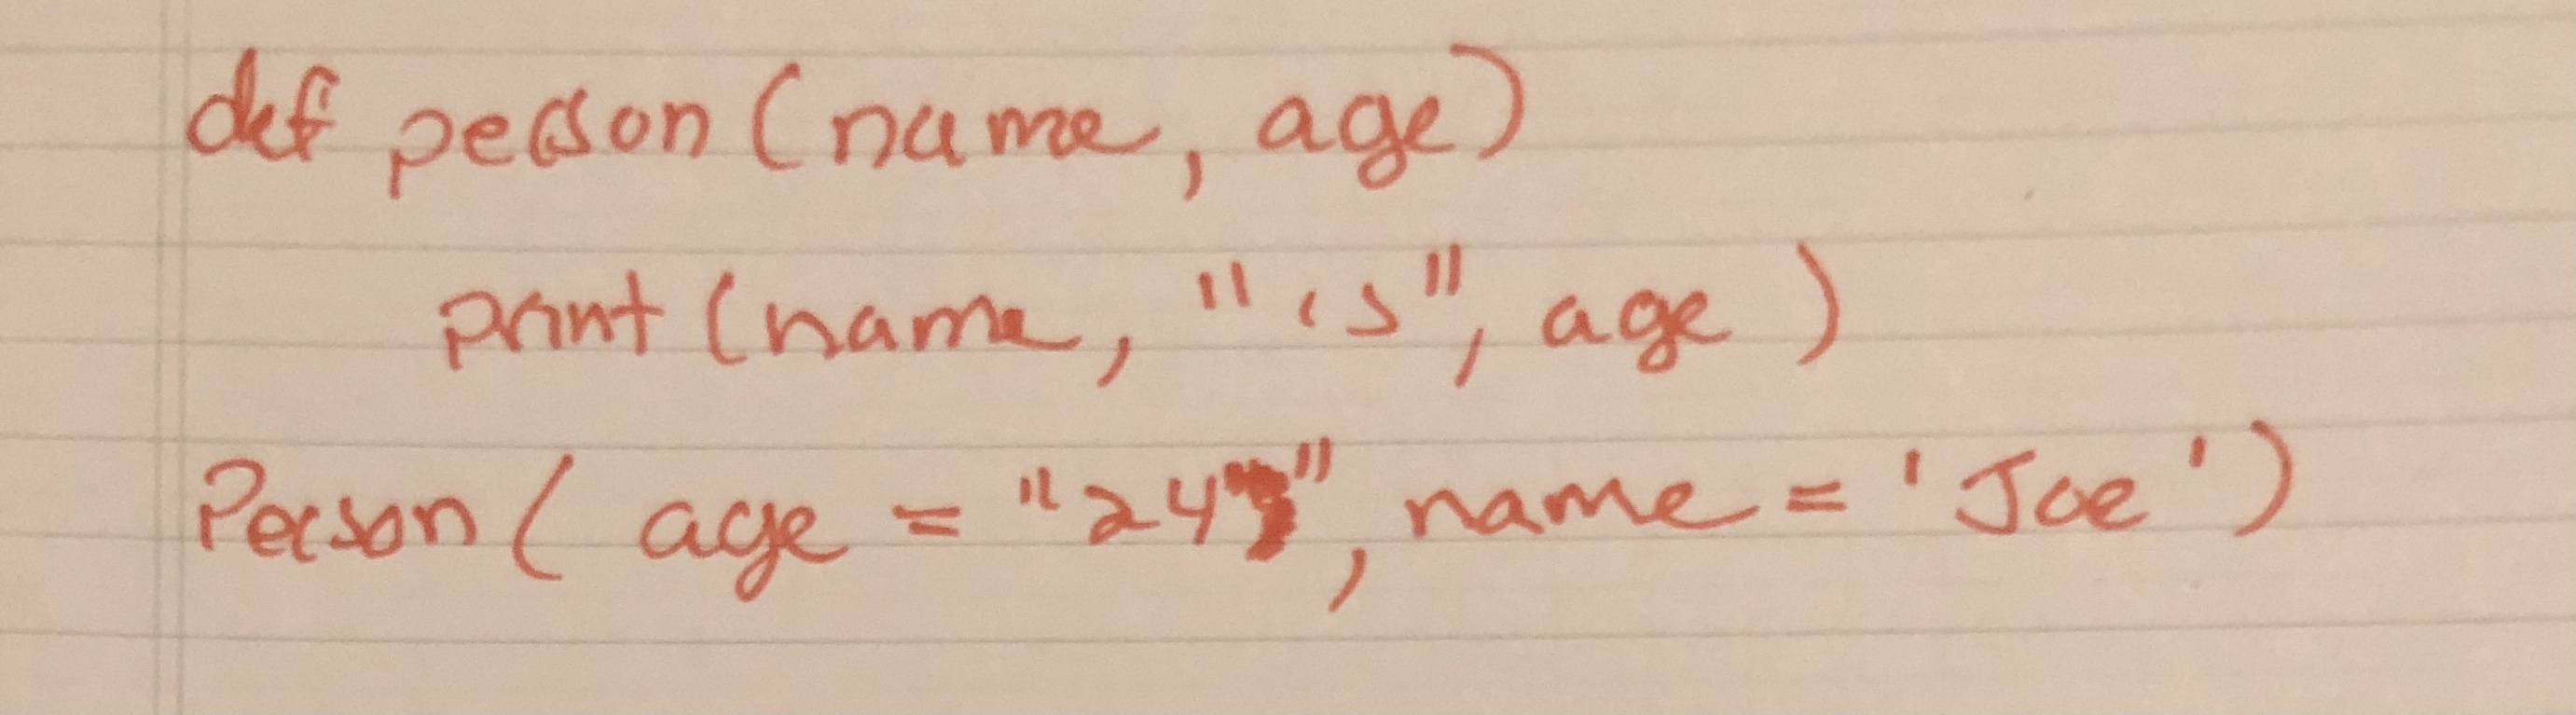 def person (name, age)
print (name, "is", age )
Person ( age = "24", name = 'Joe')